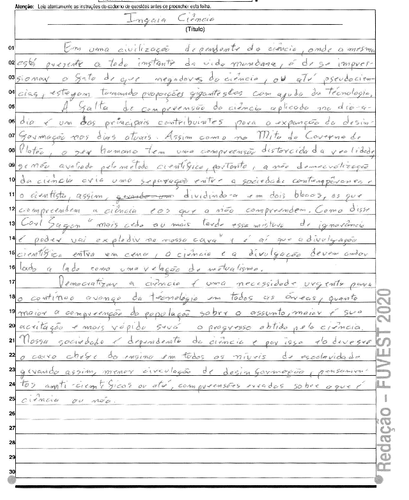 Atenção: Leia atentamente as instruções do caderno de questões antes de preencher esta folha.
Ingoia Ciência
(Título)
01 Em uma civilização dependente da ciência, onde a mesma
02 está presente a todo instante da vida mundana, é de se impres-
03 sionar o fato de que negadores da ciência, ou até pseudocien-
04 cias, estejam tomando proporções gigantescas com ajuda da tecnologia,
05 A falta de compreensão da ciência aplicada no dia-a-
06 dia é um dos principais contribuintes para a expansão da desin-
07 formação nos dias atuais. Assim como no Mito da Caverna de
08 Platão, o ser humano tem uma compreensão distorcida da realidade
09 se não avaliado pelo método científico, portanto, a não democratização
10 da ciência cria uma separação entre a sociedade contemporânea e
11 o cientista, assim, dividindo-a em dois blocos, os que
12 compreendem a ciência e os que a não compreendem. Como disse
13 Carl Sagan "mais cedo ou mais tarde essa mistura de ignorância
14 e poder vai explodir na nossa cara" e é aí que a divulgação
15 científica entra em cena, a ciência e a divulgação devem andar
16 lado a lado como uma relação de mutualismo.
17 Democratizar a ciência é uma necessidade urgente para
18 o contínuo avanço da tecnologia em todas as áreas, quanto
19 maior a compreenção da população sobre o assunto, maior é sua
20 aceitação e mais rápido será o progresso obtido pela ciência.
21 Nossa sociedade é dependente da ciência e por isso ela deve ser
22 o carro chefe do ensino em todos os níveis de escolaridade
23 gerando assim, menor circulação de desinformação, pensamen-
24 tos anti-científicos ou até, compreensões erradas sobre o que é
25 ciência ou não.
26
27
28
29
30
Redação – FUVEST 2020